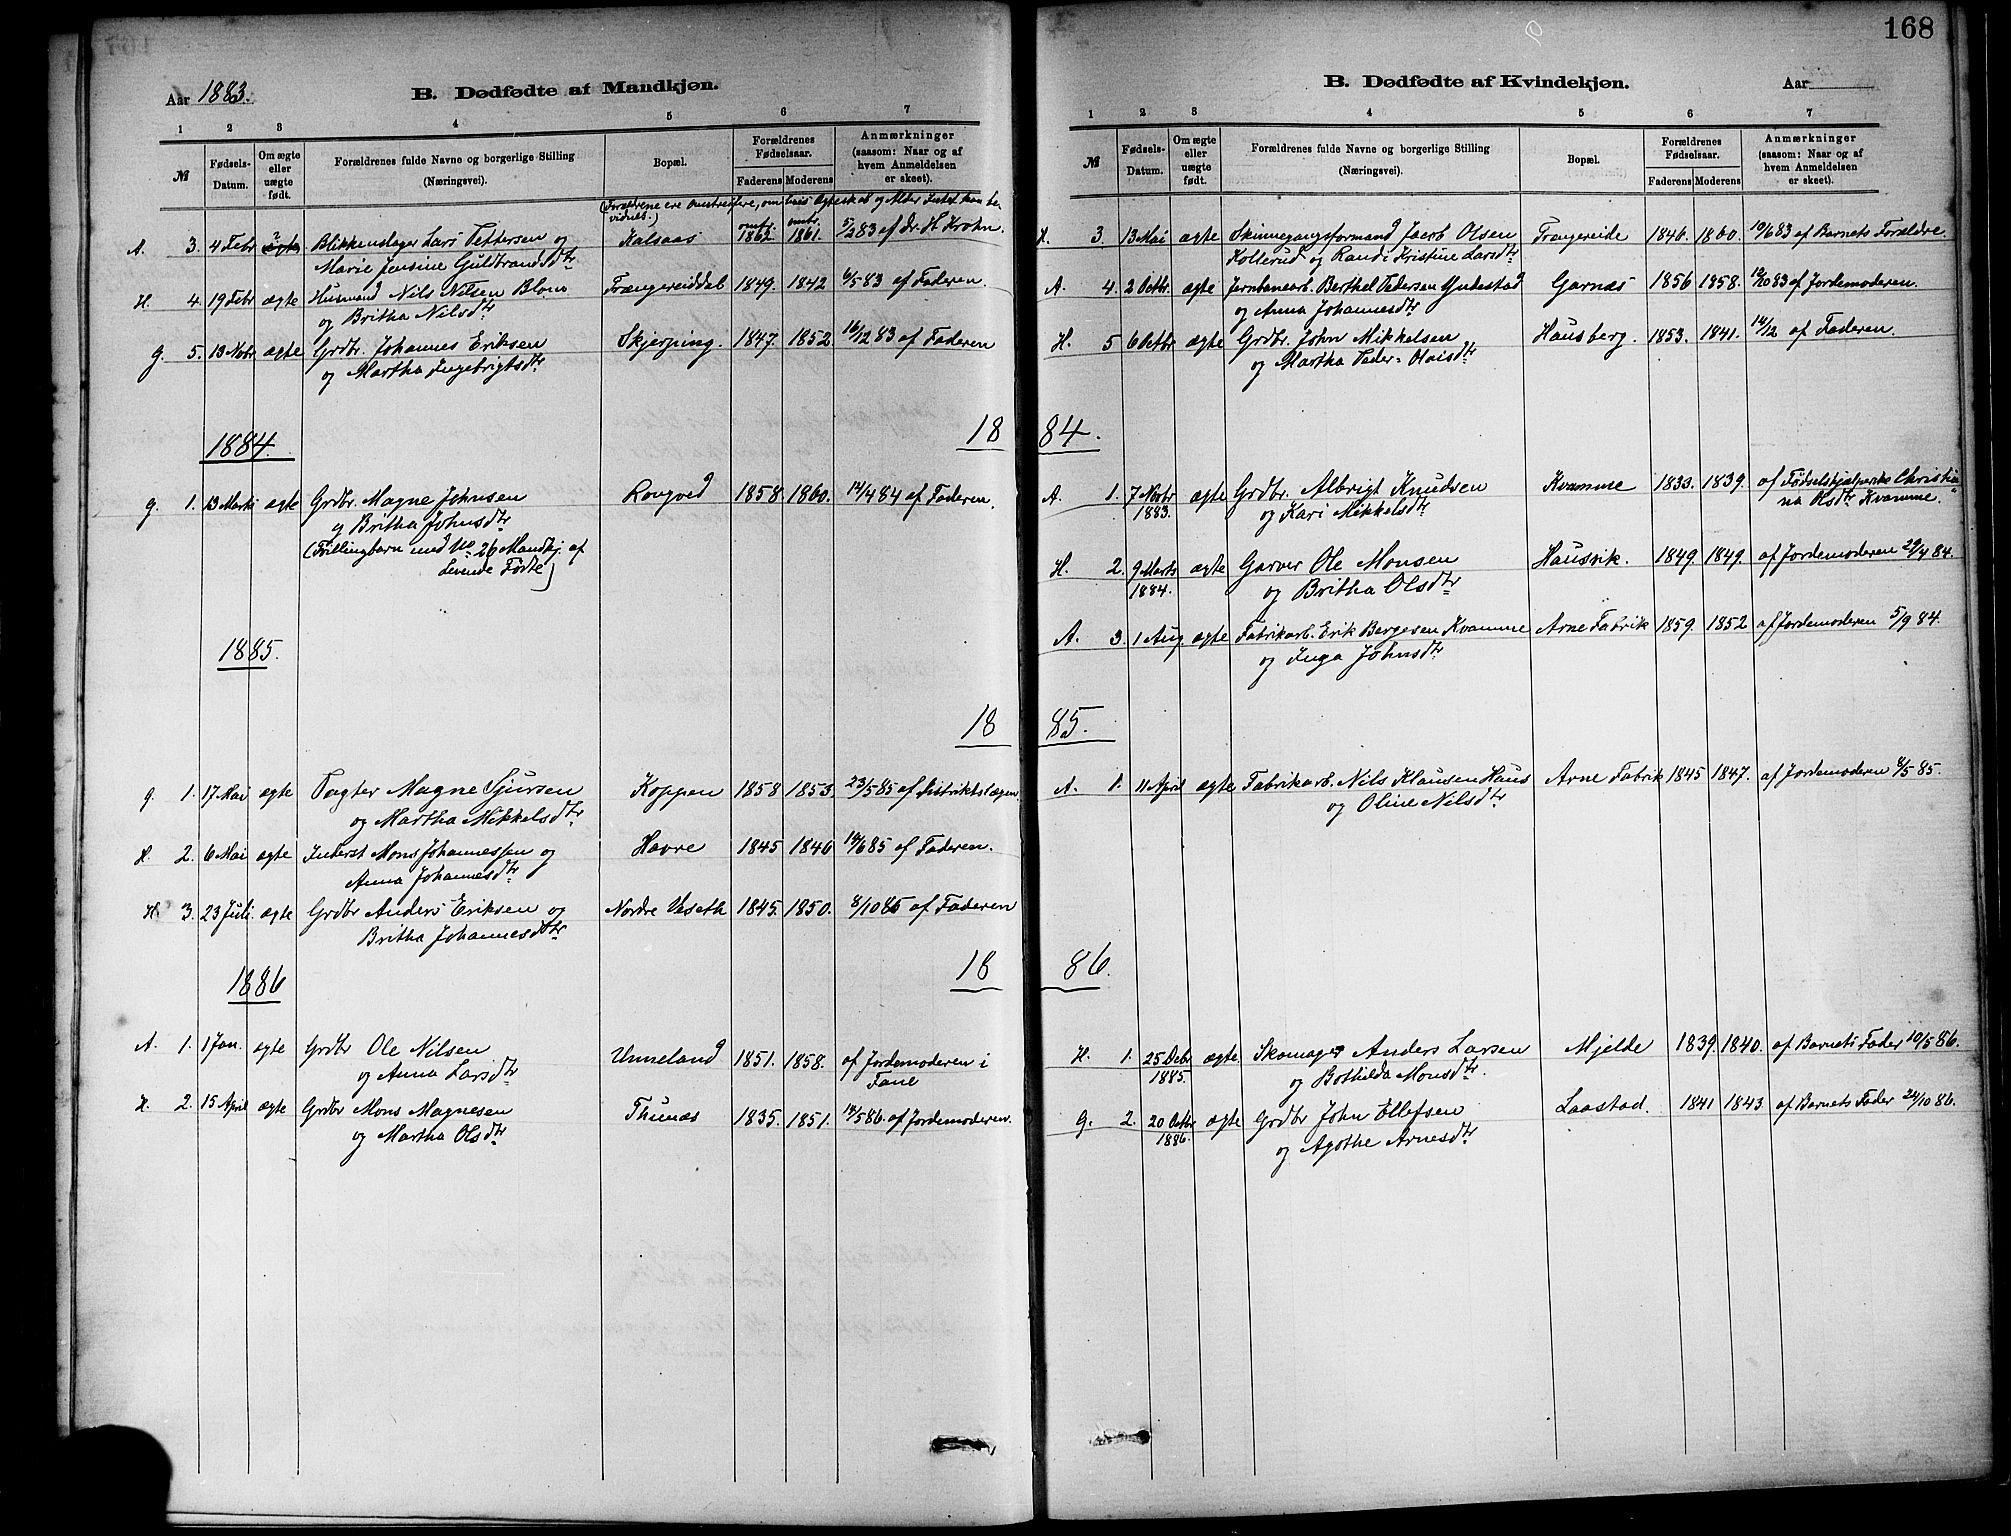 168
Aar 1883.
B. Dødfødte af Mandkjøn.
1 2 3 4 5 6 7
№
Fødsels-Datum.
Om ægte eller uægte født.
Forældrenes fulde Navne og borgerlige Stilling (Næringsvei).
Bopæl.
Forældrenes Fødselsaar.
Faderens Moderens
Anmærkninger (saasom: Naar og af hvem Anmeldelsen er skeet).
(Forældrene ere omstreifere, om hvis Ægteskab og Alder Intet kan be-
vidnes.)
A. 3. 4 Febr ? ægte Blikkenslager Lars Pettersen og Kalsaas omtr. 1862 omtr. 1861. 5/2 83 af Dr. H. Krohn.
Marie Jensine Guldbrandsdtr
H. 4. 19 Febr ægte Husmand Nils Nilsen Blom Trængereiddal 1849. 1842 6/5 83 af Faderen.
og Britha Nilsdtr
G. 5. 13 Novbr ægte Grdbr. Johannes Eriksen Skjerping. 1847. 1852 16/12 83 af Faderen
og Martha Ingebrigtsdtr
1884.
G. 1. 13 Marts ægte Grdbr Magne Johnsen Rongved 1858 1860. 14/4 84 af Faderen.
og Britha Johnsdtr
(Tvillingbarn med No 26 Mandkj. af
Levende Fødte)
1885.
18
G. 1. 17 Mai ægte Fogter Magne Sjursen Koppen 1858 1853. 23/5 85 af Distriktslægen
og Martha Mikkelsdtr
H. 2. 6 Mai ægte Inderst Mons Johannessen og Havre 1845 1846 14/6 85 af Faderen.
Anna Johannesdtr
H. 3. 23 Juli. ægte Grdbr Anders Eriksen og Nordre Veseth 1845. 1850. 8/10 85 af Faderen
Britha Johannesdtr
1886
18
A. 1. 1 Jan. ægte Grdbr Ole Nilsen Unneland 1851. 1858. af Jordemoderen i
og Anna Larsdtr Fane
H. 2. 15 April ægte Grdbr Mons Magnesen Thunæs 1835. 1851. 14/5 86. af Jordemoderen.
og Martha Olsdtr
B. Dødfødte af Kvindekjøn.
Aar
1 2 3 4 5 6 7
№
Fødsels-Datum.
Om ægte eller uægte født.
Forældrenes fulde Navne og borgerlige Stilling (Næringsvei).
Bopæl.
Forældrenes Fødselsaar.
Faderens Moderens
Anmærkninger (saasom: Naar og af hvem Anmeldelsen er skeet).
H. 3. 13 Mai ægte Skinnegangsformand Jacob Olsen Trængereide 1846. 1860. 10/6 83 af Barnets Forældre.
Kollerud og Randi Kristine Larsdtr
A. 4. 2 Octbr. ægte Jernbanearb. Berthel Pedersen Gjedestad Garnæs 1856 1858. 12/10 83 af Jordemoderen.
og Anna Johannesdtr
H. 5 6 Octbr ægte Grdbr. John Mikkelsen Hausberg. 1853. 1841. 14/12 af Faderen.
og Martha Peder-Olaisdtr
18 84.
A. 1. 7 Novbr 1883. ægte Grdbr. Albrigt Knudsen Kvamme 1833. 1839. af Fødselshjælperske Christia-
og Kari Mikkelsdtr na Olsdtr Kvamme.
H. 2. 9 Marts 1884. ægte Garver Ole Monsen Hausvik. 1849. 1849. af Jordemoderen 29/4 84.
og Britha Olsdtr
A. 3. 1 Aug. ægte Fabrikarb. Erik Bergesen Kvamme Arne Fabrik 1859. 1852 af Jordemoderen 5/9 84.
og Inga Johnsdtr
85.
A. 1. 11 April ægte Fabrikarb. Nils Klausen Haus Arne Fabrik 1845 1847. af Jordemoderen 8/5 85.
og Oline Nilsdtr
86.
H. 1. 25 Decbr 1885. ægte Skomager Anders Larsen Mjelde 1839 1840. af Barnets Fader 10/5 86.
og Bothilda Monsdtr.
G. 2. 20 Octbr 1886. ægte Grdbr John Ellefsen Laastad. 1841 1843. af Barnets Fader 24/10 86.
og Agothe Arnesdtr